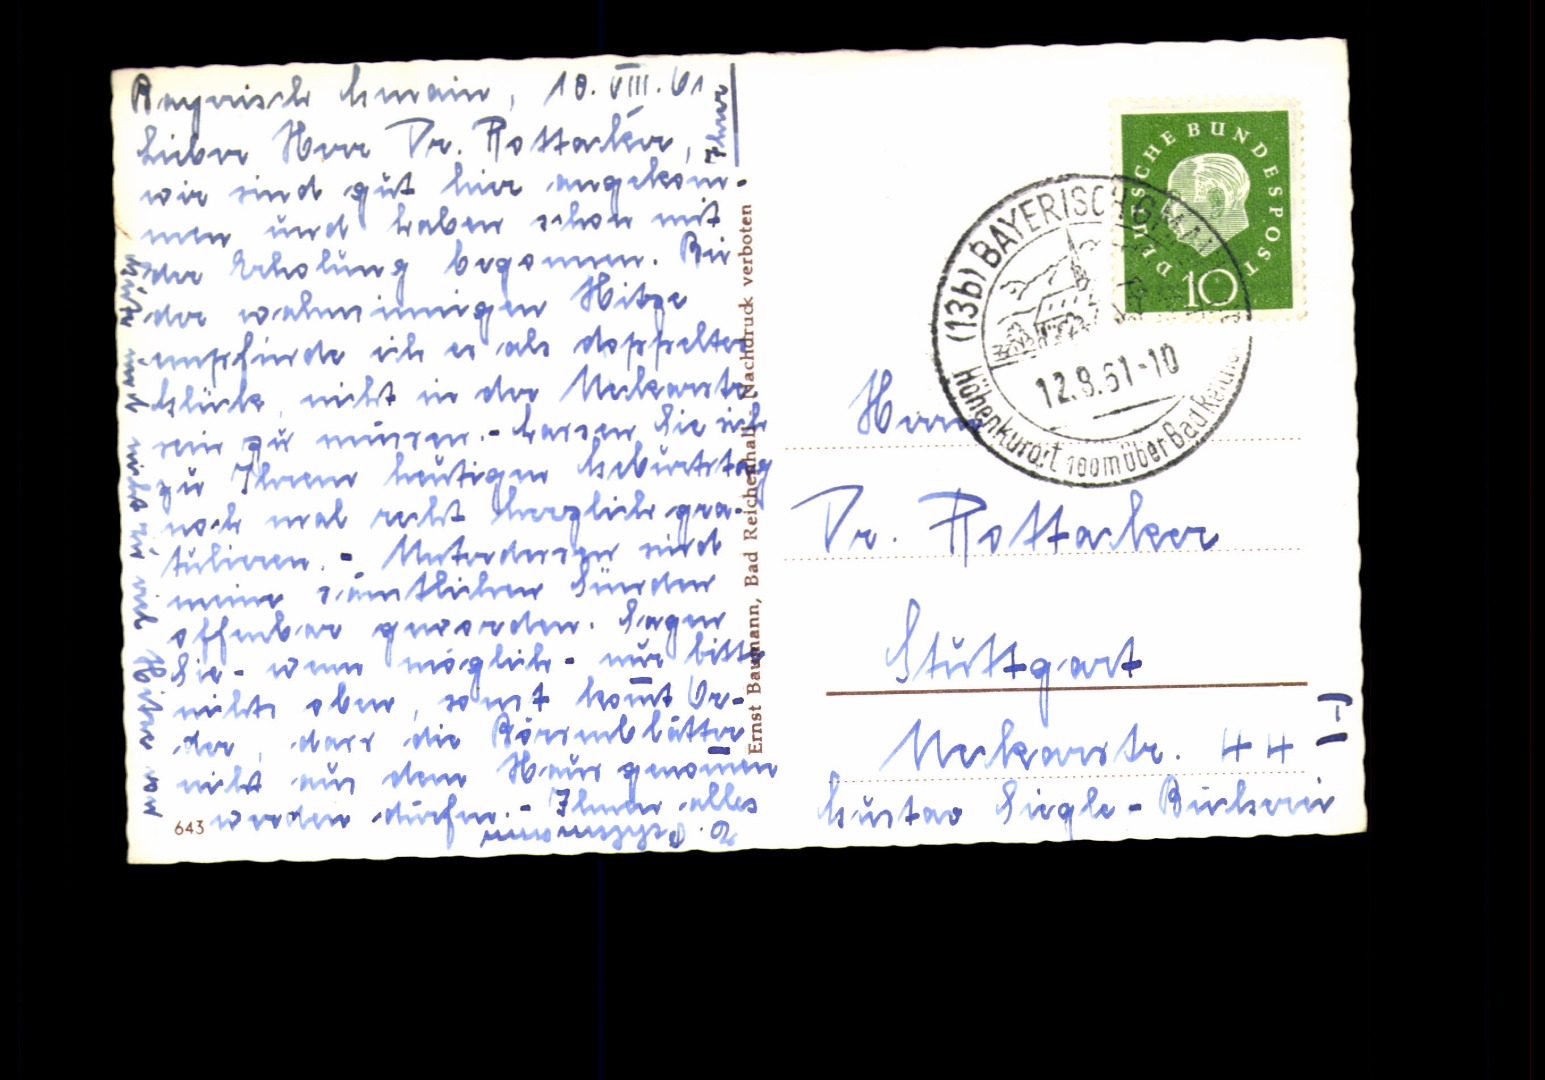 Bayerisch Gmain, 10. VIII. 61
Lieber Herr Dr. Rottacker,
wir sind gut hier angekom-
men und haben schon mit
der Erholung begonnen. Bei
der wahnsinnigen Hitze
empfinde ich es als doppeltes
Glück, nicht in der Neckarstr.
sein zu müssen. - Lassen Sie sich
zu Ihrem heutigen Geburtstag
noch mal recht herzlich gra-
tulieren. - Unterdessen sind
meine sämtlichen Sünden
offenbar geworden. Sagen
Sie - wenn möglich - nur bitte
nichts oben, sonst komt Or-
der, dass die Börsenblätter
nicht aus dem Haus genomen
werden dürfen. - Ihnen alles
Ihre
643
Ernst Baumann, Bad Reichenhall - Nachdruck verboten
DEUTSCHE BUNDESPOST
10
(13b) BAYERISCH GMAIN
12.8.61-10
Höhenkurort 100m über Bad Reichenhall
Herrn
Dr. Rottacker
Stuttgart
Neckarstr. 44 I
Gustav Siegle-Bücherei